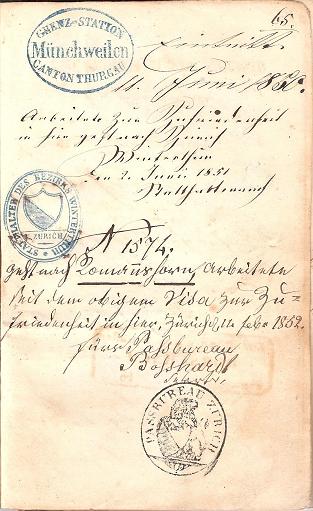 65.
GRENZ-STATION
Münchweilen
CANTON THURGAU
Eintritt.
11. Juni 185
Arbeitete zur Zufriedenheit
in hier geht nach Zürich
Winterthur
den 2. Juni 1851
Statthalteramt
STATTHALTER DES BEZIRKS WINTERTHUR
ZÜRICH
N 1574.
geht nach Romanshorn, Arbeitete
seit dem obigem Visa zur Zu=
friedenheit in hier, Zürich, 11. Febr 1852.
fürs Passbureau
Bosshardt
PASSBUREAU ZÜRICH